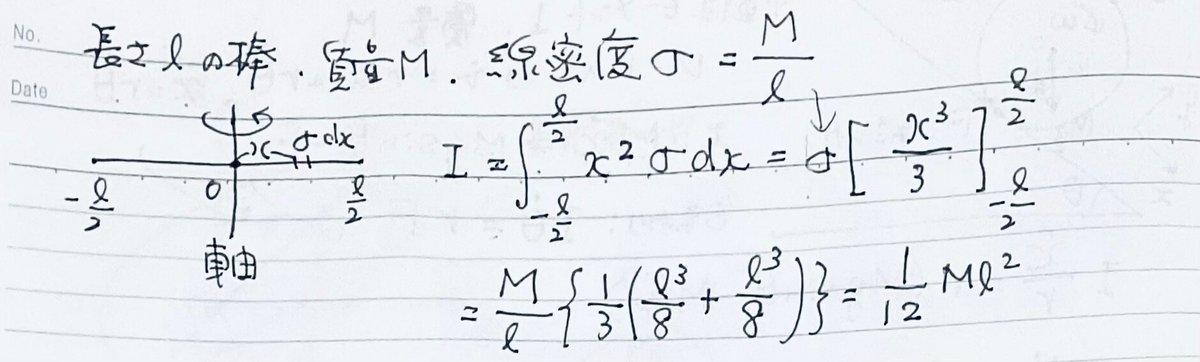 No.
長さ l の棒. 質量M. 線密度 σ = M/l
Date
x σdx
-l/2 0 l/2
軸
I = ∫_{-l/2}^{l/2} x² σdx = σ[x³/3]_{-l/2}^{l/2}
= M/l {1/3(l³/8 + l³/8)} = 1/12 Ml²